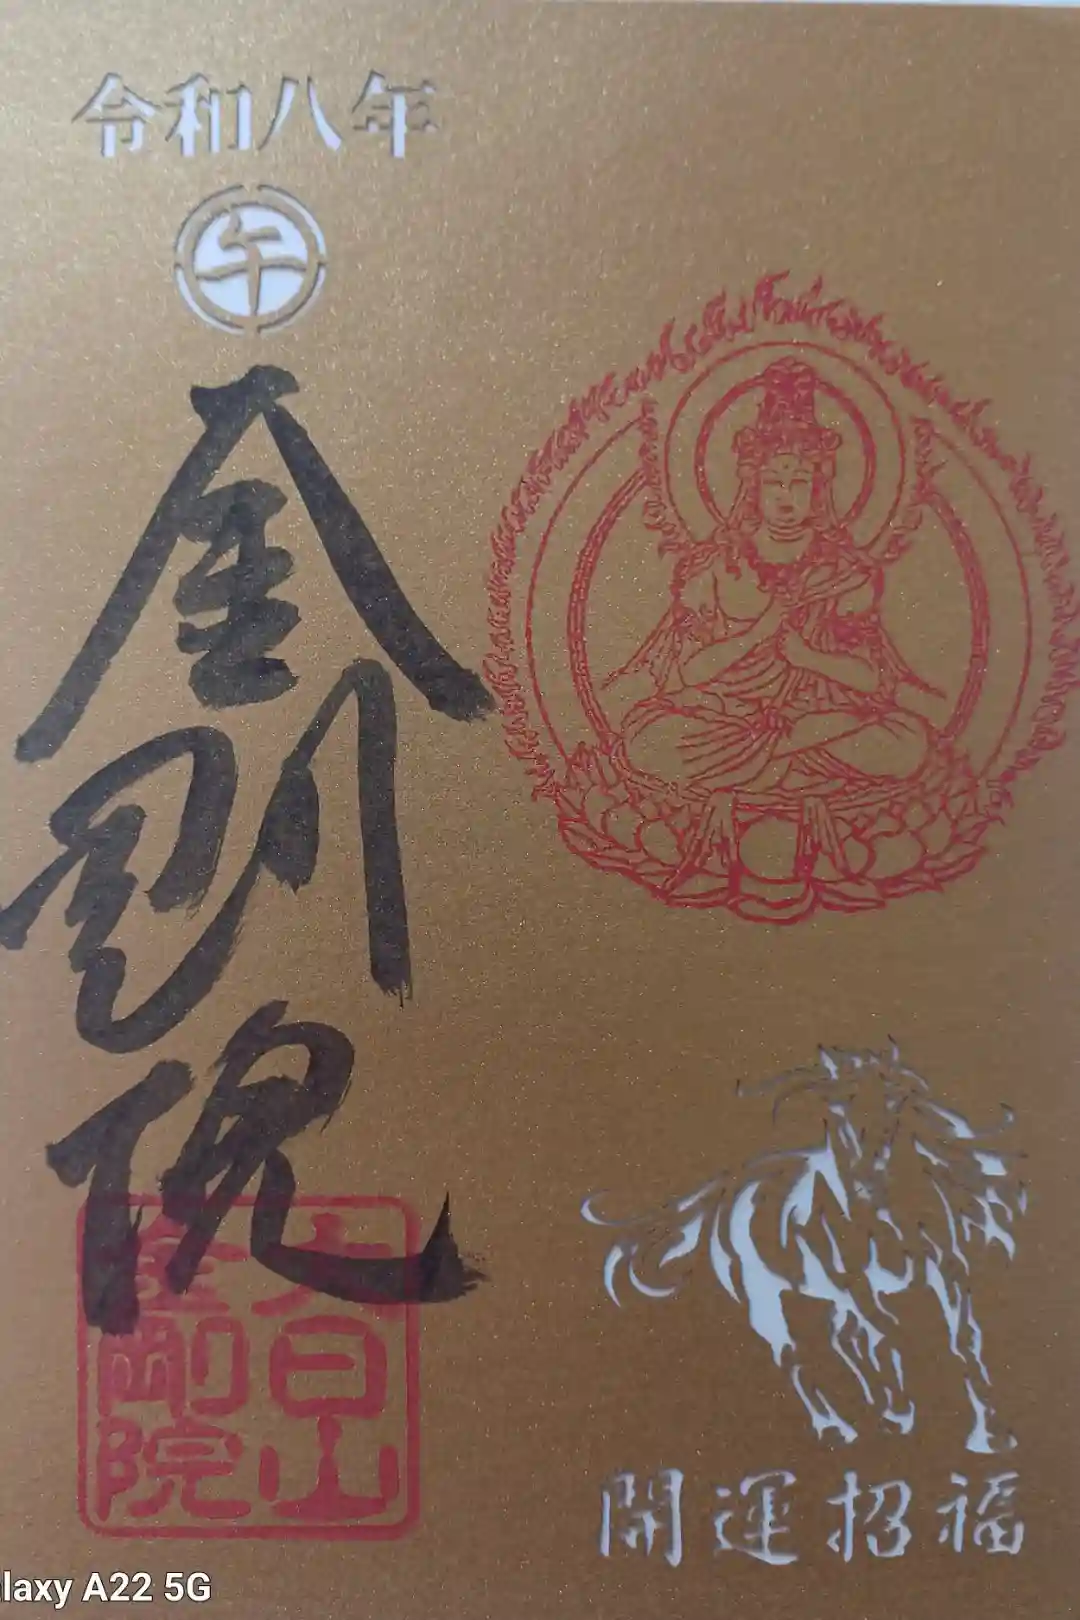 令和八年
午
金剛院
大日山
金剛院
開運招福
laxy A22 5G